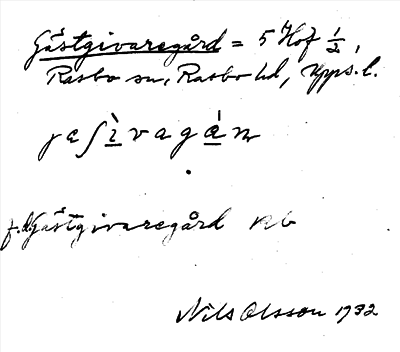 Gästgivaregård = 5 Hof ½,
Rasbo sn, Rasbo hd, Upps. l.
jæʃìvagán
f.d. Gästgivaregård nb
Nils Olsson 1932